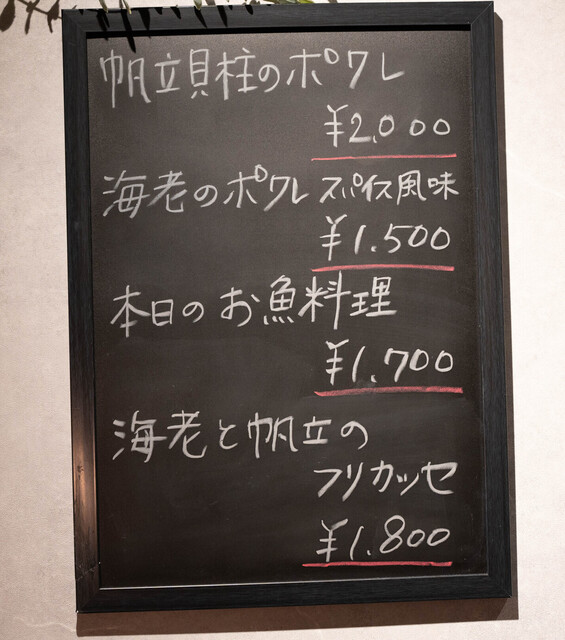 帆立貝柱のポワレ
¥2,000
海老のポワレ スパイス風味
¥1,500
本日のお魚料理
¥1,700
海老と帆立の
フリカッセ
¥1,800